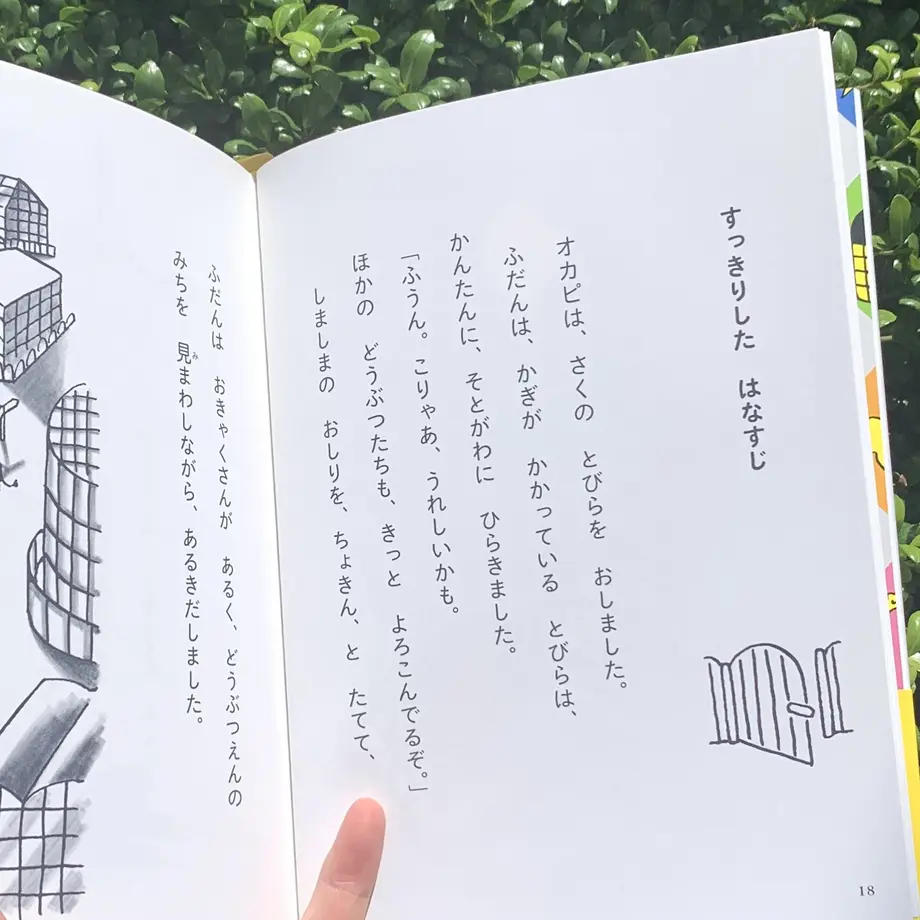 すっきりした　はなすじ
オカピは、さくの　とびらを　おしました。
ふだんは、かぎが　かかっている　とびらは、
かんたんに、そとがわに　ひらきました。
「ふうん。こりゃあ、うれしいかも。
ほかの　どうぶつたちも、きっと　よろこんでるぞ。」
しましまの　おしりを、ちょきん、と　たてて、
ふだんは　おきゃくさんが　あるく、どうぶつえんの
みちを　見まわしながら、あるきだしました。
み
18